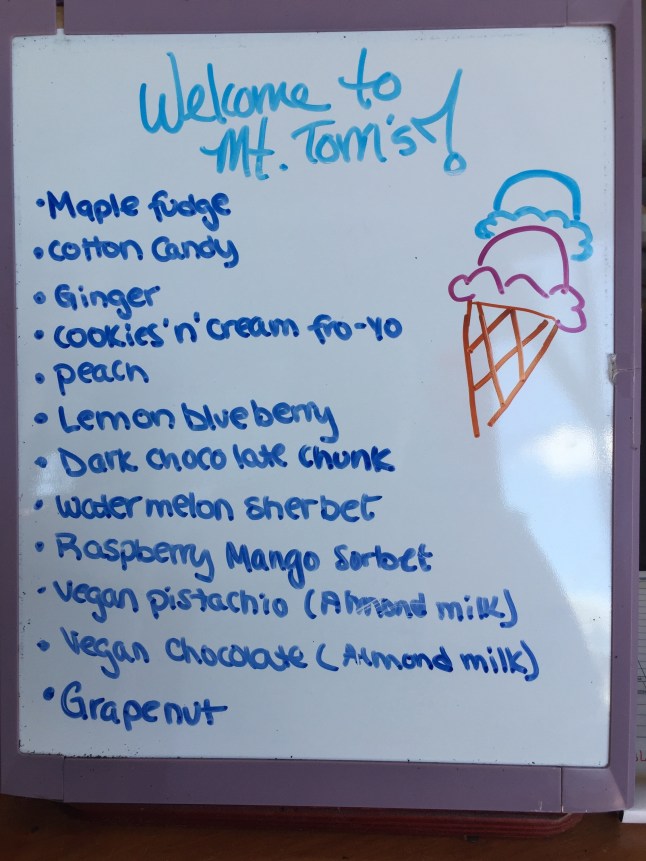 Welcome to
Mt. Tom's!
• Maple fudge
• cotton Candy
• Ginger
• cookies 'n' cream fro-yo
• peach
• Lemon blueberry
• Dark chocolate chunk
• watermelon sherbet
• Raspberry Mango Sorbet
• vegan pistachio (Almond milk)
• Vegan Chocolate (Almond milk)
• Grapenut